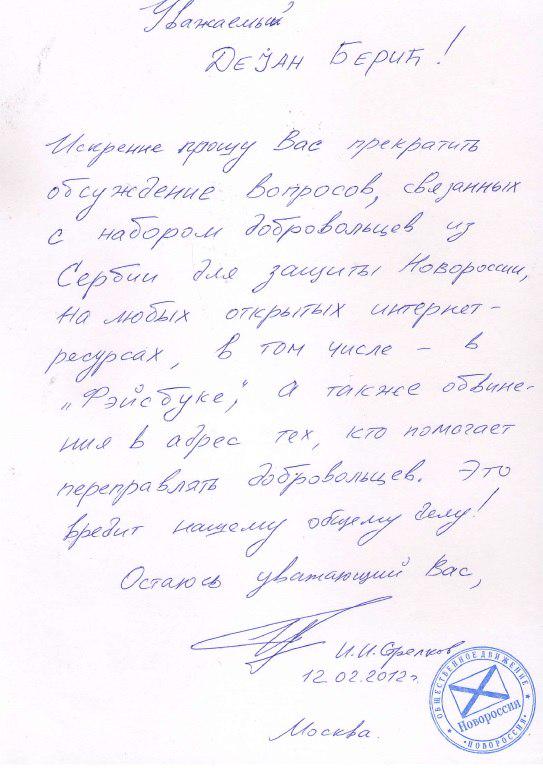 Уважаемый
Dејан Берић!
Искренне прошу Вас прекратить
обсуждение вопросов, связанных
с набором добровольцев из
Сербии для защиты Новороссии,
на любых открытых интернет-
ресурсах, в том числе - в
„Фэйсбуке", а также обвине-
ния в адрес тех, кто помогает
переправлять добровольцев. Это
вредит нашему общему делу!
Остаюсь уважающий Вас,
И.И.Стрелков
12.02.2012г.
Москва.
ОБЩЕСТВЕННОЕ ДВИЖЕНИЕ
Новороссия
•НОВОРОССИЯ•